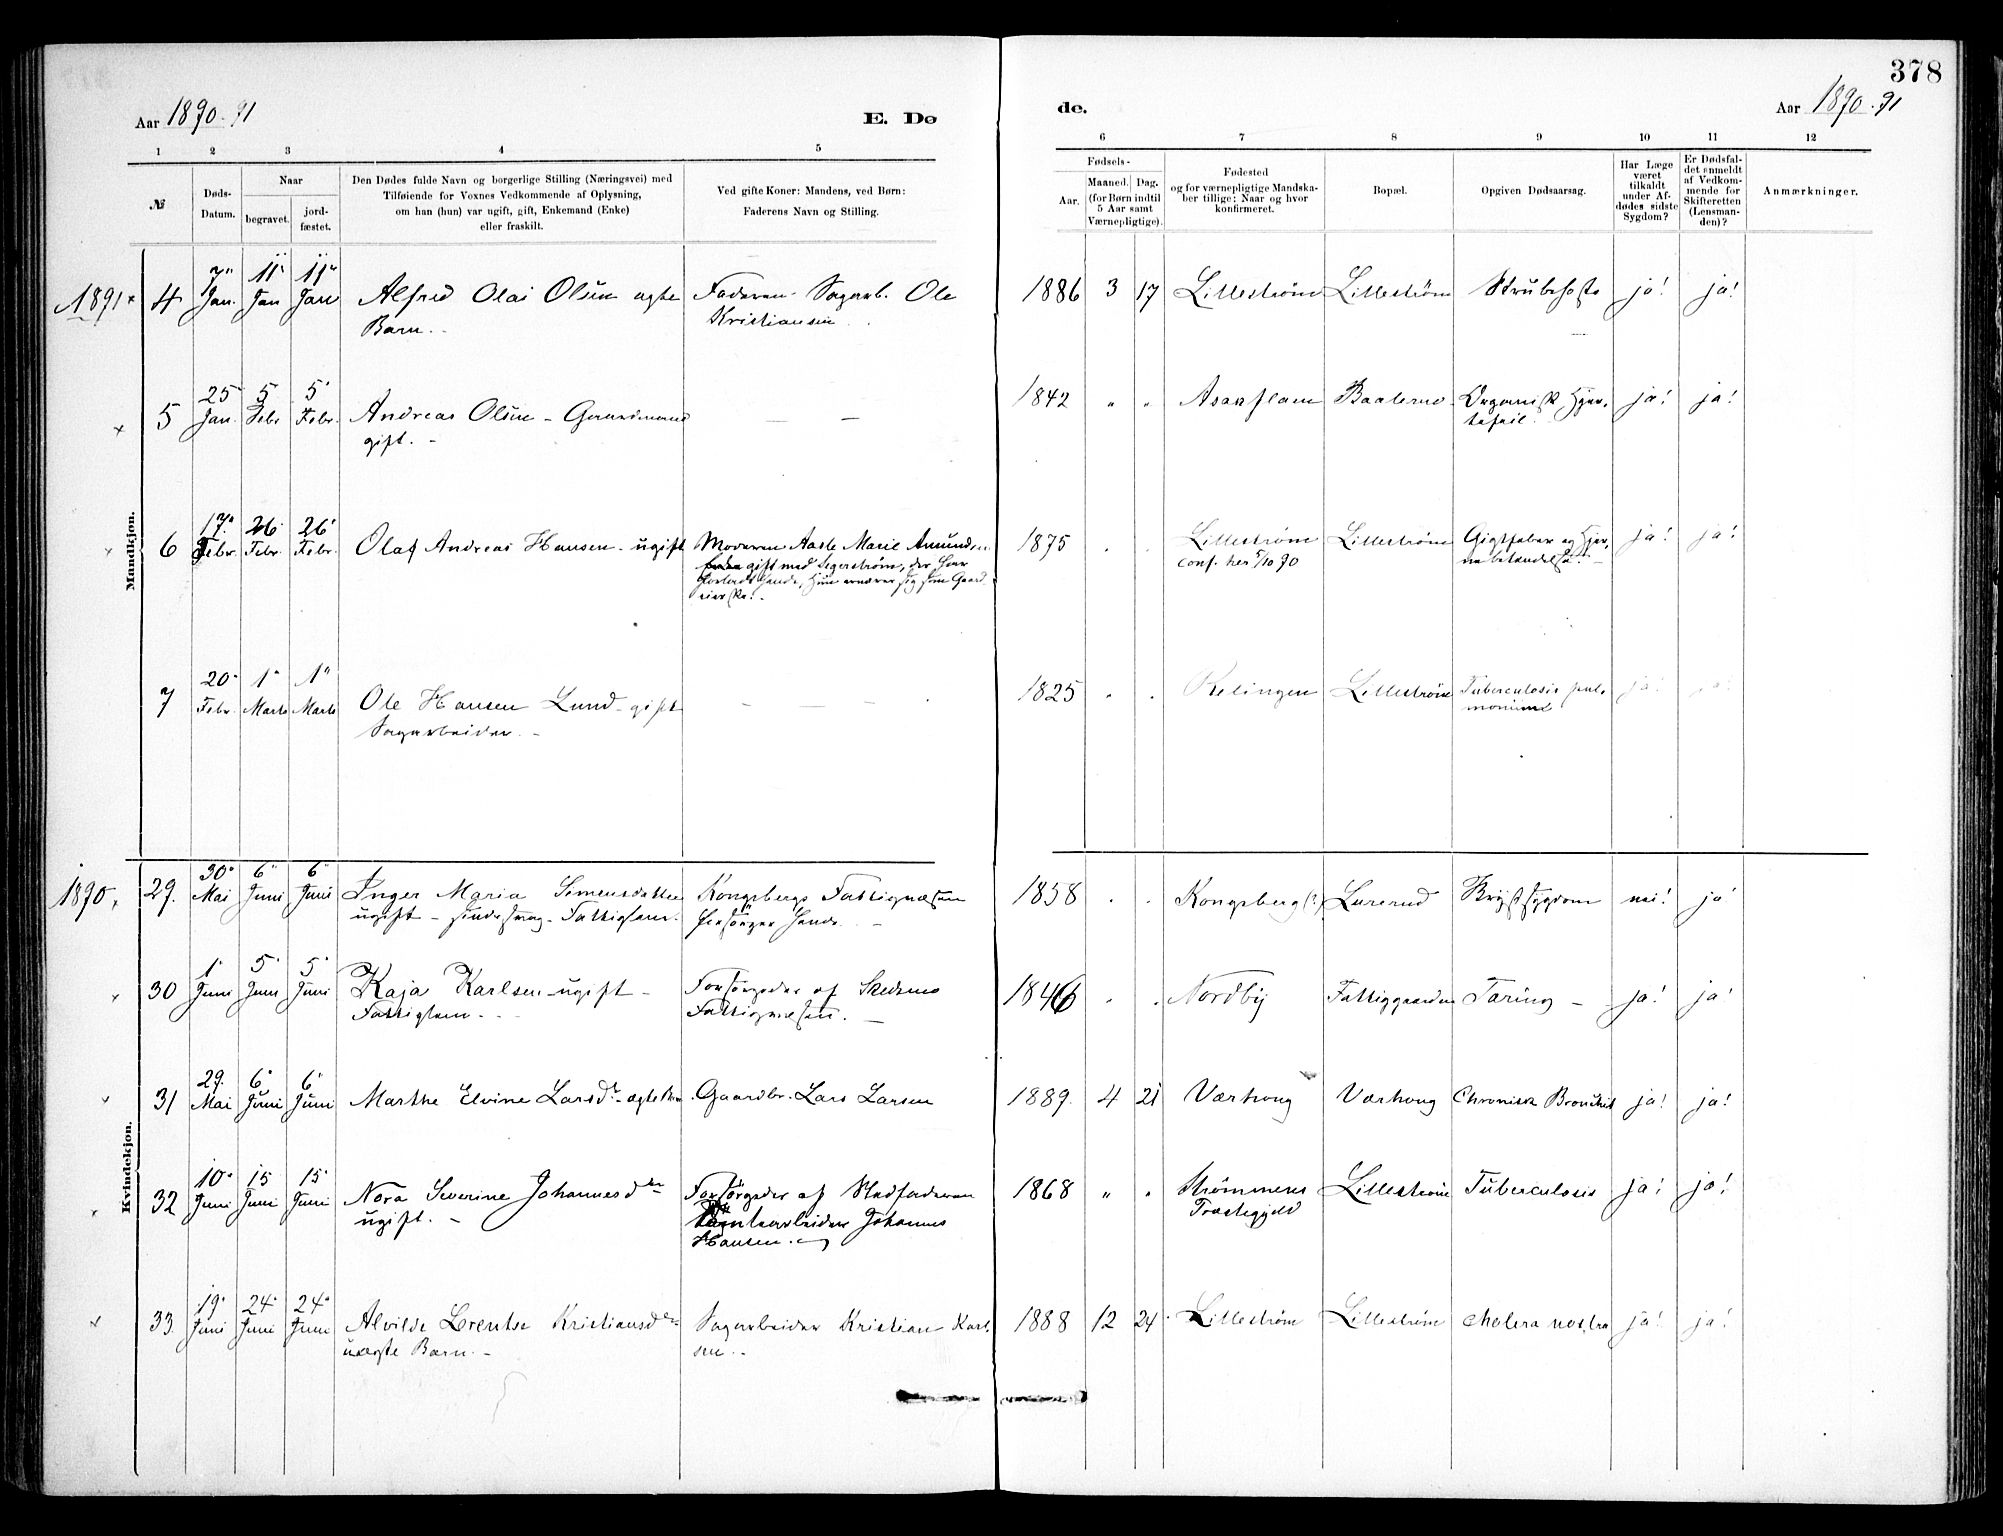 378
Aar 1890-91
E. Dø
de.
Aar 1890-91
1 2 3 4 5 6 7 8 9 10 11 12
№
Døds-Datum.
Naar
begravet.
jord-fæstet.
Den Dødes fulde Navn og borgerlige Stilling (Næringsvei) med
Tilføiende for Voxnes Vedkommende af Oplysning,
om han (hun) var ugift, gift, Enkemand (Enke)
eller fraskilt.
Ved gifte Koner: Mandens, ved Børn:
Faderens Navn og Stilling.
Fødsels-
Aar.
Maaned. Dag.
(for Børn indtil
5 Aar samt
Værnepligtige).
Fødested
og for værnepligtige Mandska-
ber tillige: Naar og hvor
konfirmeret.
Bopæl.
Opgiven Dødsaarsag.
Har Læge
været
tilkaldt
under Af-
dødes sidste
Sygdom?
Er Dødsfal-
det anmeldt
af Vedkom-
mende for
Skifteretten
(Lensman-
den)?
Anmærkninger.
Mandkjøn.
1891 × 4 7 Jan. 11 Jan 11 Jan Alfred Olai Olsen ægte Faderen Sagarb. Ole 1886 3 17 Lillestrøm Lillestrøm Strubehoste ja! ja!
Barn. Kristiansen
× 5 25 Jan. 5 Febr 5 Febr. Andreas Olsen - Gaardmand — — 1842 " " Baalerud Organisk Hjer- ja! ja!
gift. - tefeil.
6 17 Febr. 26 Febr. 26 Febr. Olaf Andreas Hansen - ugift Moderen Marie 1875 Lillestrøm Lillestrøm Gigtfeber og Hjer- ja! ja!
gift med Segerström, der har conf. her 5/10 90
forladt hende, Hun ernærer sig som Gaard-
eierske.
7 20 Febr. 1 Marts 1 Marts Ole Hansen Lund - gift — — — 1825 Relingen Lillestrøm Tuberculosis pul- ja! ja!
Sagarbeider. - monum
Kvindekjøn.
1890. 29. 30 Mai 6 Juni 6 Juni Inger Maria Simensdatter Kongsbergs Fattigvæsen 1858 Kongsberg (?) Lurerud Brystsygdom nei! ja
ugift - sindssvag - Fattiglem. forsørger hende. -
30 1 Juni 5 Juni 5 Juni Kaja Karlsen - ugift - Forsørgedes af Skedsmo 1846 Nordby Fattiggaarden Tæring - ja! ja!
Fattiglem. Fattigvæsen. —
31 29 Mai 6 Juni 6 Juni Marthe Elvine Larsdr - ægte Barn Gaardbr. Lars Larsen 1889. 4 21 Værhoug Værhoug Chronisk Bronchit ja! ja!
32 10 Juni 15 Juni 15 Juni Nora Severine Johannesdtr Forsørgedes af Stedfaderen 1868 " " Strømmens Lillestrøm Tuberculosis ja! ja!
ugift. - Tomtearbeider Johannes Præstegjeld
Hansen.
33. 19 Juni 24 Juni 24 Juni Alvilde Lrentse Kristiansdtr Sagarbeider Kristian Karl- 1888 12 24 Lillestrøm Lillestrøm cholera nostra ja! ja!
uægte Barn. - sen -